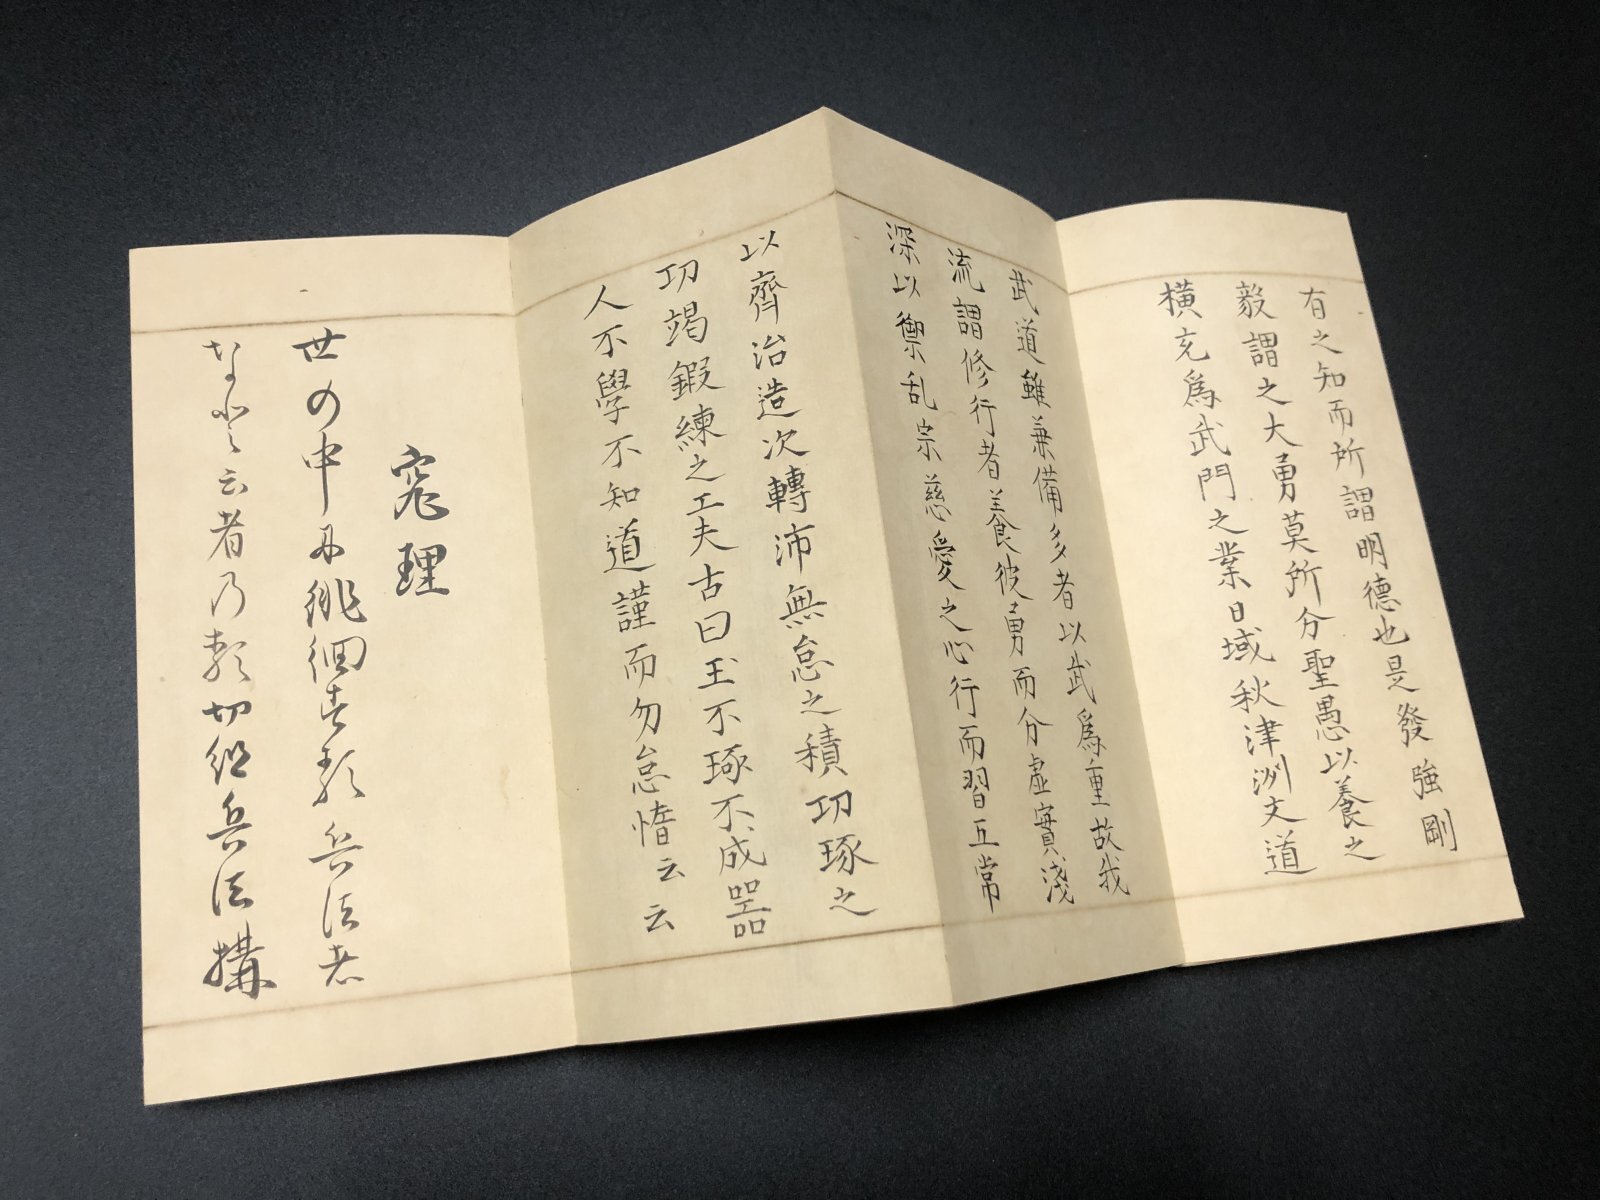 有之知而所謂明德也是發強剛
毅謂之大勇莫所分聖愚以養之
横充爲武門之業日域秋津洲文道
武道雖兼備多者以武爲重故我
流謂修行者養彼勇而分虛實淺
深以禦乱宗慈愛之心行而習五常
以齊治造次轉沛無怠之積功琢之
功竭鍛練之工夫古曰玉不琢不成器
人不學不知道謹而勿怠惰云云
窕理
世の中に徘徊す類兵法者
など云者乃類切組兵法構